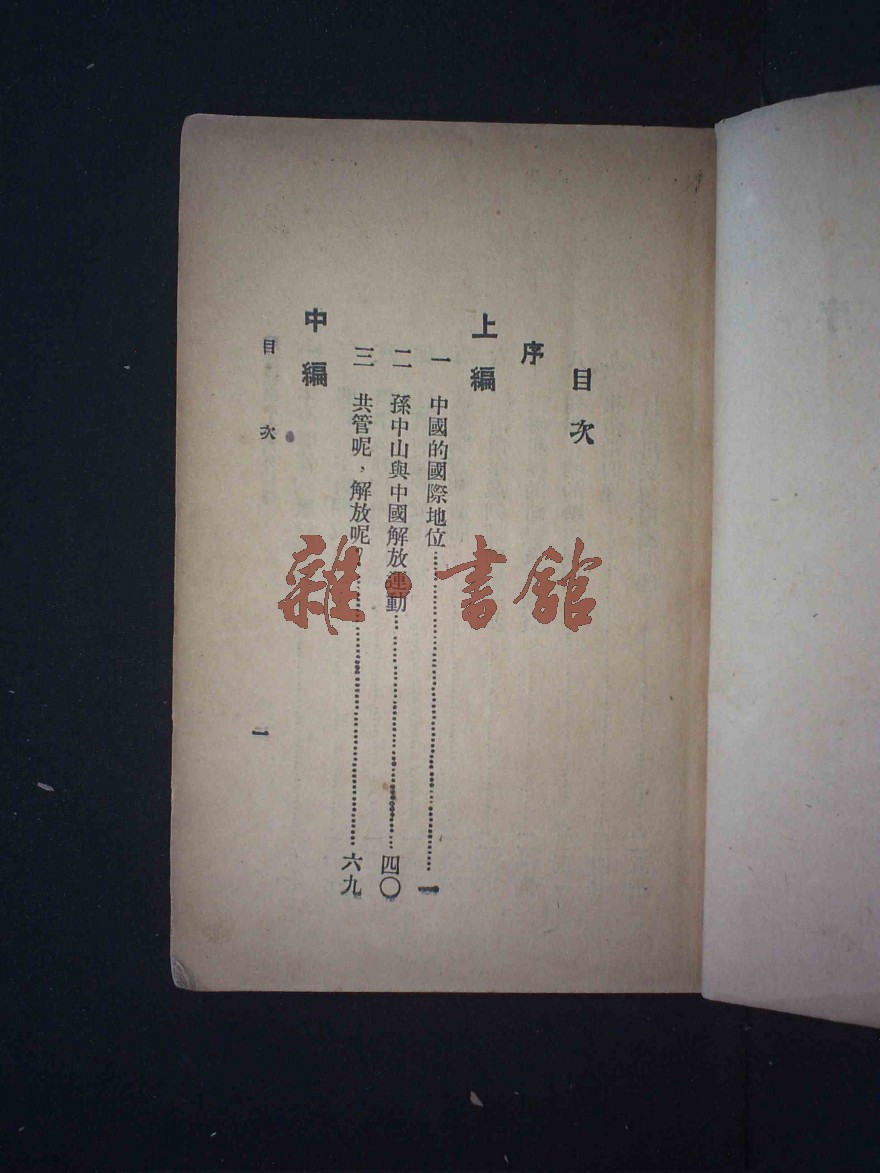 目次
序
上編
一　中國的國際地位⋯⋯⋯⋯⋯⋯⋯⋯⋯⋯一
二　孫中山與中國解放運動⋯⋯⋯⋯⋯⋯⋯⋯四〇
三　共管呢，解放呢？⋯⋯⋯⋯⋯⋯⋯⋯⋯⋯六九
中編
目次
一
雜·書館